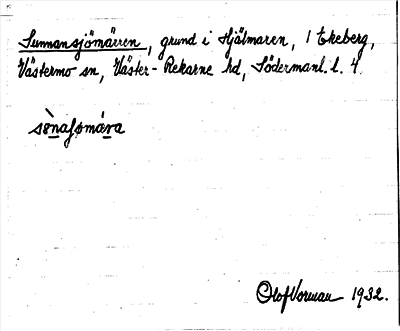 Sunnansjömärren, grund i Hjälmaren, 1 Ekeberg,
Västermo sn, Väster-Rekarne hd, Södermanl. l. 4
Olof Vorman 1932.